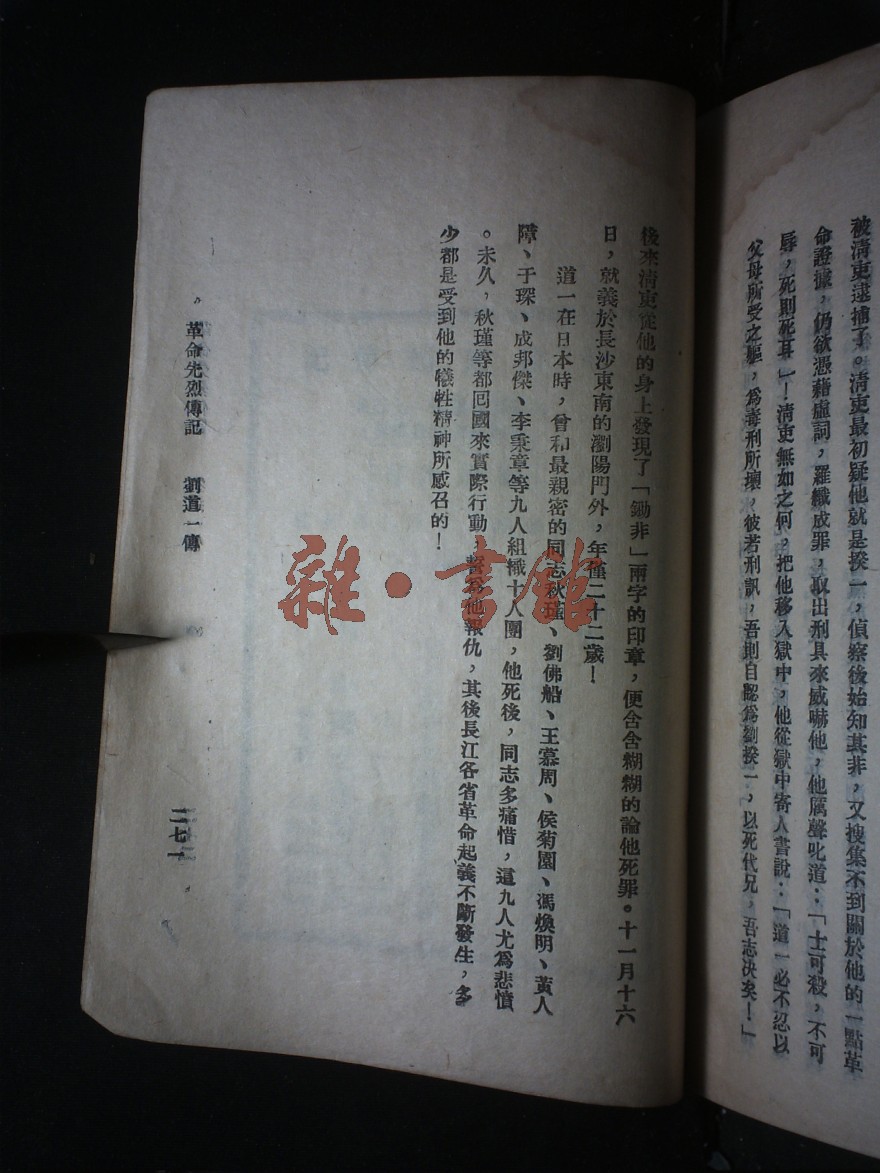 被淸吏逮捕了。淸吏最初疑他就是揆一，偵察後始知其非，又搜集不到關於他的一點革
命證據，仍欲憑藉虛詞，羅織成罪，取出刑具來威嚇他，他厲聲叱道：「士可殺，不可
辱，死則死耳」！淸吏無如之何，把他移入獄中，他從獄中寄人書說：「道一必不忍以
父母所受之軀，爲毒刑所壞，彼若刑訊，吾則自認爲劉揆一，以死代兄，吾志决矣！」
後來淸吏從他的身上發現了「鋤非」兩字的印章，便含含糊糊的論他死罪。十一月十六
日，就義於長沙東南的瀏陽門外，年僅二十二歲！
道一在日本時，曾和最親密的同志秋瑾、劉佛船、王慕周、侯菊園、馮煥明、黃人
障、于琛、成邦傑、李乘章等九人組織十人團，他死後，同志多痛惜，這九人尤爲悲憤
。未久，秋瑾等都囘國來實際行動，誓爲他報仇，其後長江各省革命起義不斷發生，多
少都是受到他的犧牲精神所感召的！
革命先烈傳記 劉道一傳
二七一
雜·書館